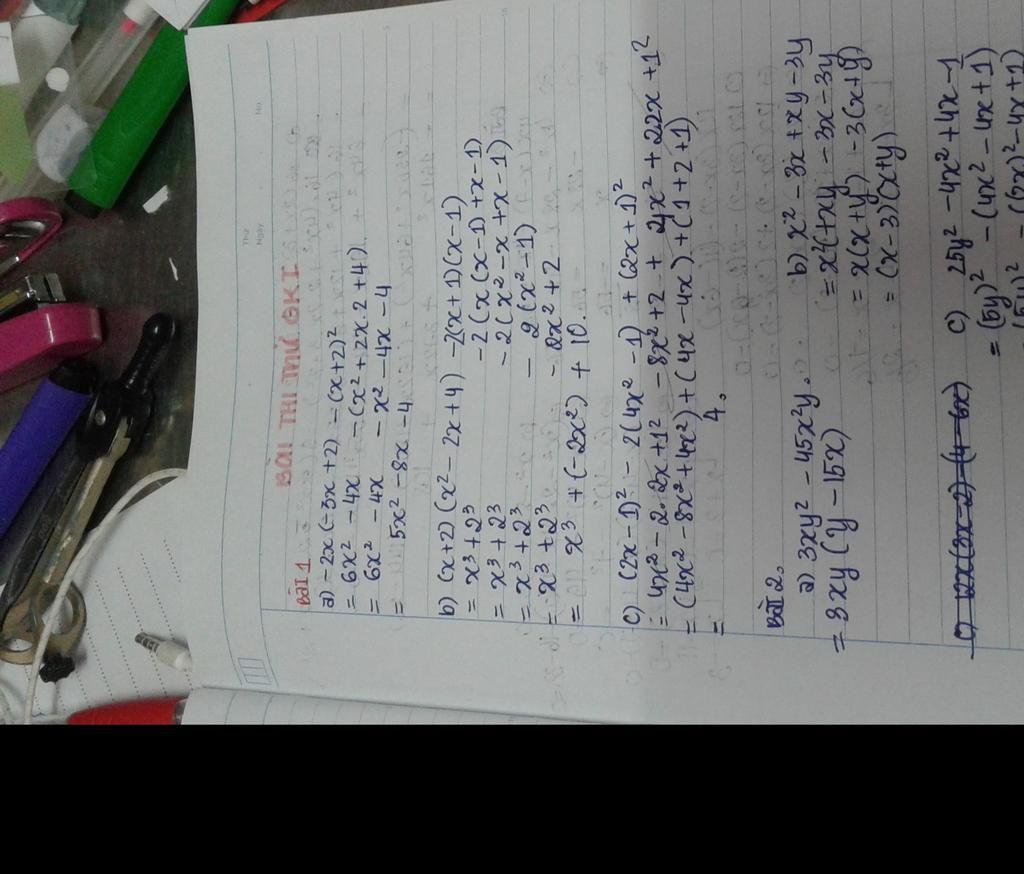 Thứ
Ngày
No
BÀI THI THỬ GKI
BÀI 1
a) -2x(-3x+2) - (x+2)²
= 6x² - 4x - (x² + 2x.2 + 4)
= 6x² - 4x - x² - 4x - 4
= 5x² - 8x - 4
b) (x+2)(x² - 2x + 4) - 2(x+1)(x-1)
= x³ + 2³ - 2(x(x-1) + x - 1)
= x³ + 2³ - 2(x² - x + x - 1)
= x³ + 2³ - 2(x² - 1)
= x³ + 2³ - 2x² + 2
= x³ + (-2x²) + 10.
c) (2x-1)² - 2(4x² - 1) + (2x+1)²
= 4x² - 2.2x + 1² - 8x² + 2 + 4x² + 22x + 1²
= (4x² - 8x² + 4x²) + (4x - 4x) + (1+2+1)
= 4.
BÀI 2.
a) 3xy² - 45x²y.
= 3xy(y - 15x)
b) x² - 3x + xy - 3y
= x²(+xy - 3x - 3y
= x(x+y) - 3(x+y)
= (x-3)(x+y)
c) 25y² - 4x² + 4x - 1
= (5y)² - (4x² - 4x + 1)